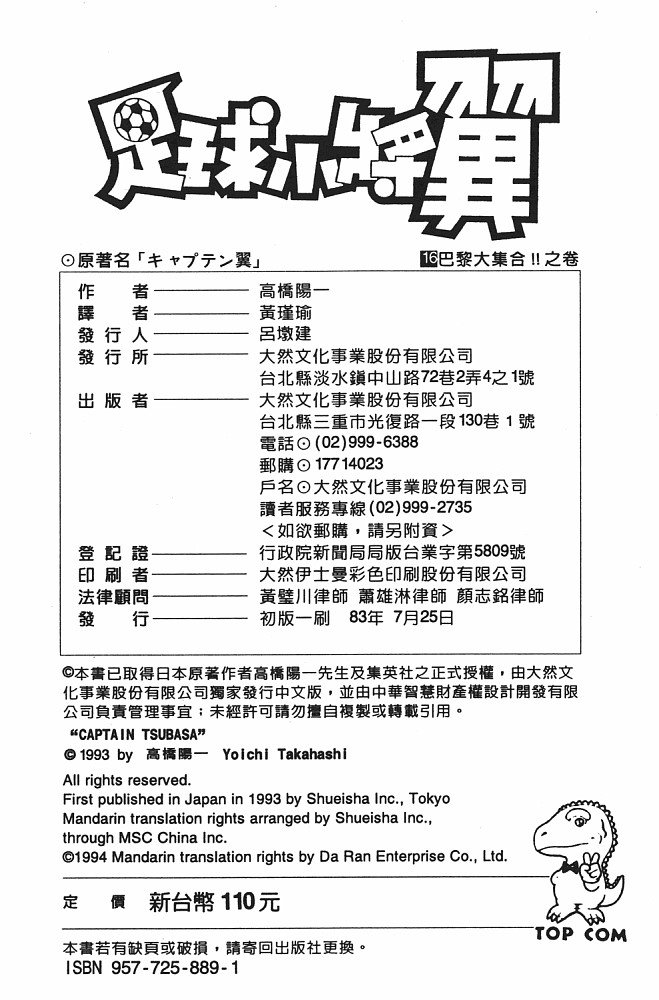 足球小將翼
⊙原著名「キャプテン翼」 16巴黎大集合!!之卷
作者——高橋陽一
譯者——黃瑾瑜
發行人——呂墩建
發行所——大然文化事業股份有限公司
台北縣淡水鎮中山路72巷2弄4之1號
出版者——大然文化事業股份有限公司
台北縣三重市光復路一段130巷1號
電話⊙(02)999-6388
郵購⊙17714023
戶名⊙大然文化事業股份有限公司
讀者服務專線(02)999-2735
＜如欲郵購，請另附資＞
登記證——行政院新聞局局版台業字第5809號
印刷者——大然伊士曼彩色印刷股份有限公司
法律顧問——黃璧川律師 蕭雄淋律師 顏志銘律師
發行——初版一刷 83年 7月25日
©本書已取得日本原著作者高橋陽一先生及集英社之正式授權，由大然文
化事業股份有限公司獨家發行中文版，並由中華智慧財產權設計開發有限
公司負責管理事宜；未經許可請勿擅自複製或轉載引用。
“CAPTAIN TSUBASA”
© 1993 by 高橋陽一 Yoichi Takahashi
All rights reserved.
First published in Japan in 1993 by Shueisha Inc., Tokyo
Mandarin translation rights arranged by Shueisha Inc.,
through MSC China Inc.
©1994 Mandarin translation rights by Da Ran Enterprise Co., Ltd.
定價 新台幣110元
TOP COM
本書若有缺頁或破損，請寄回出版社更換。
ISBN 957-725-889-1